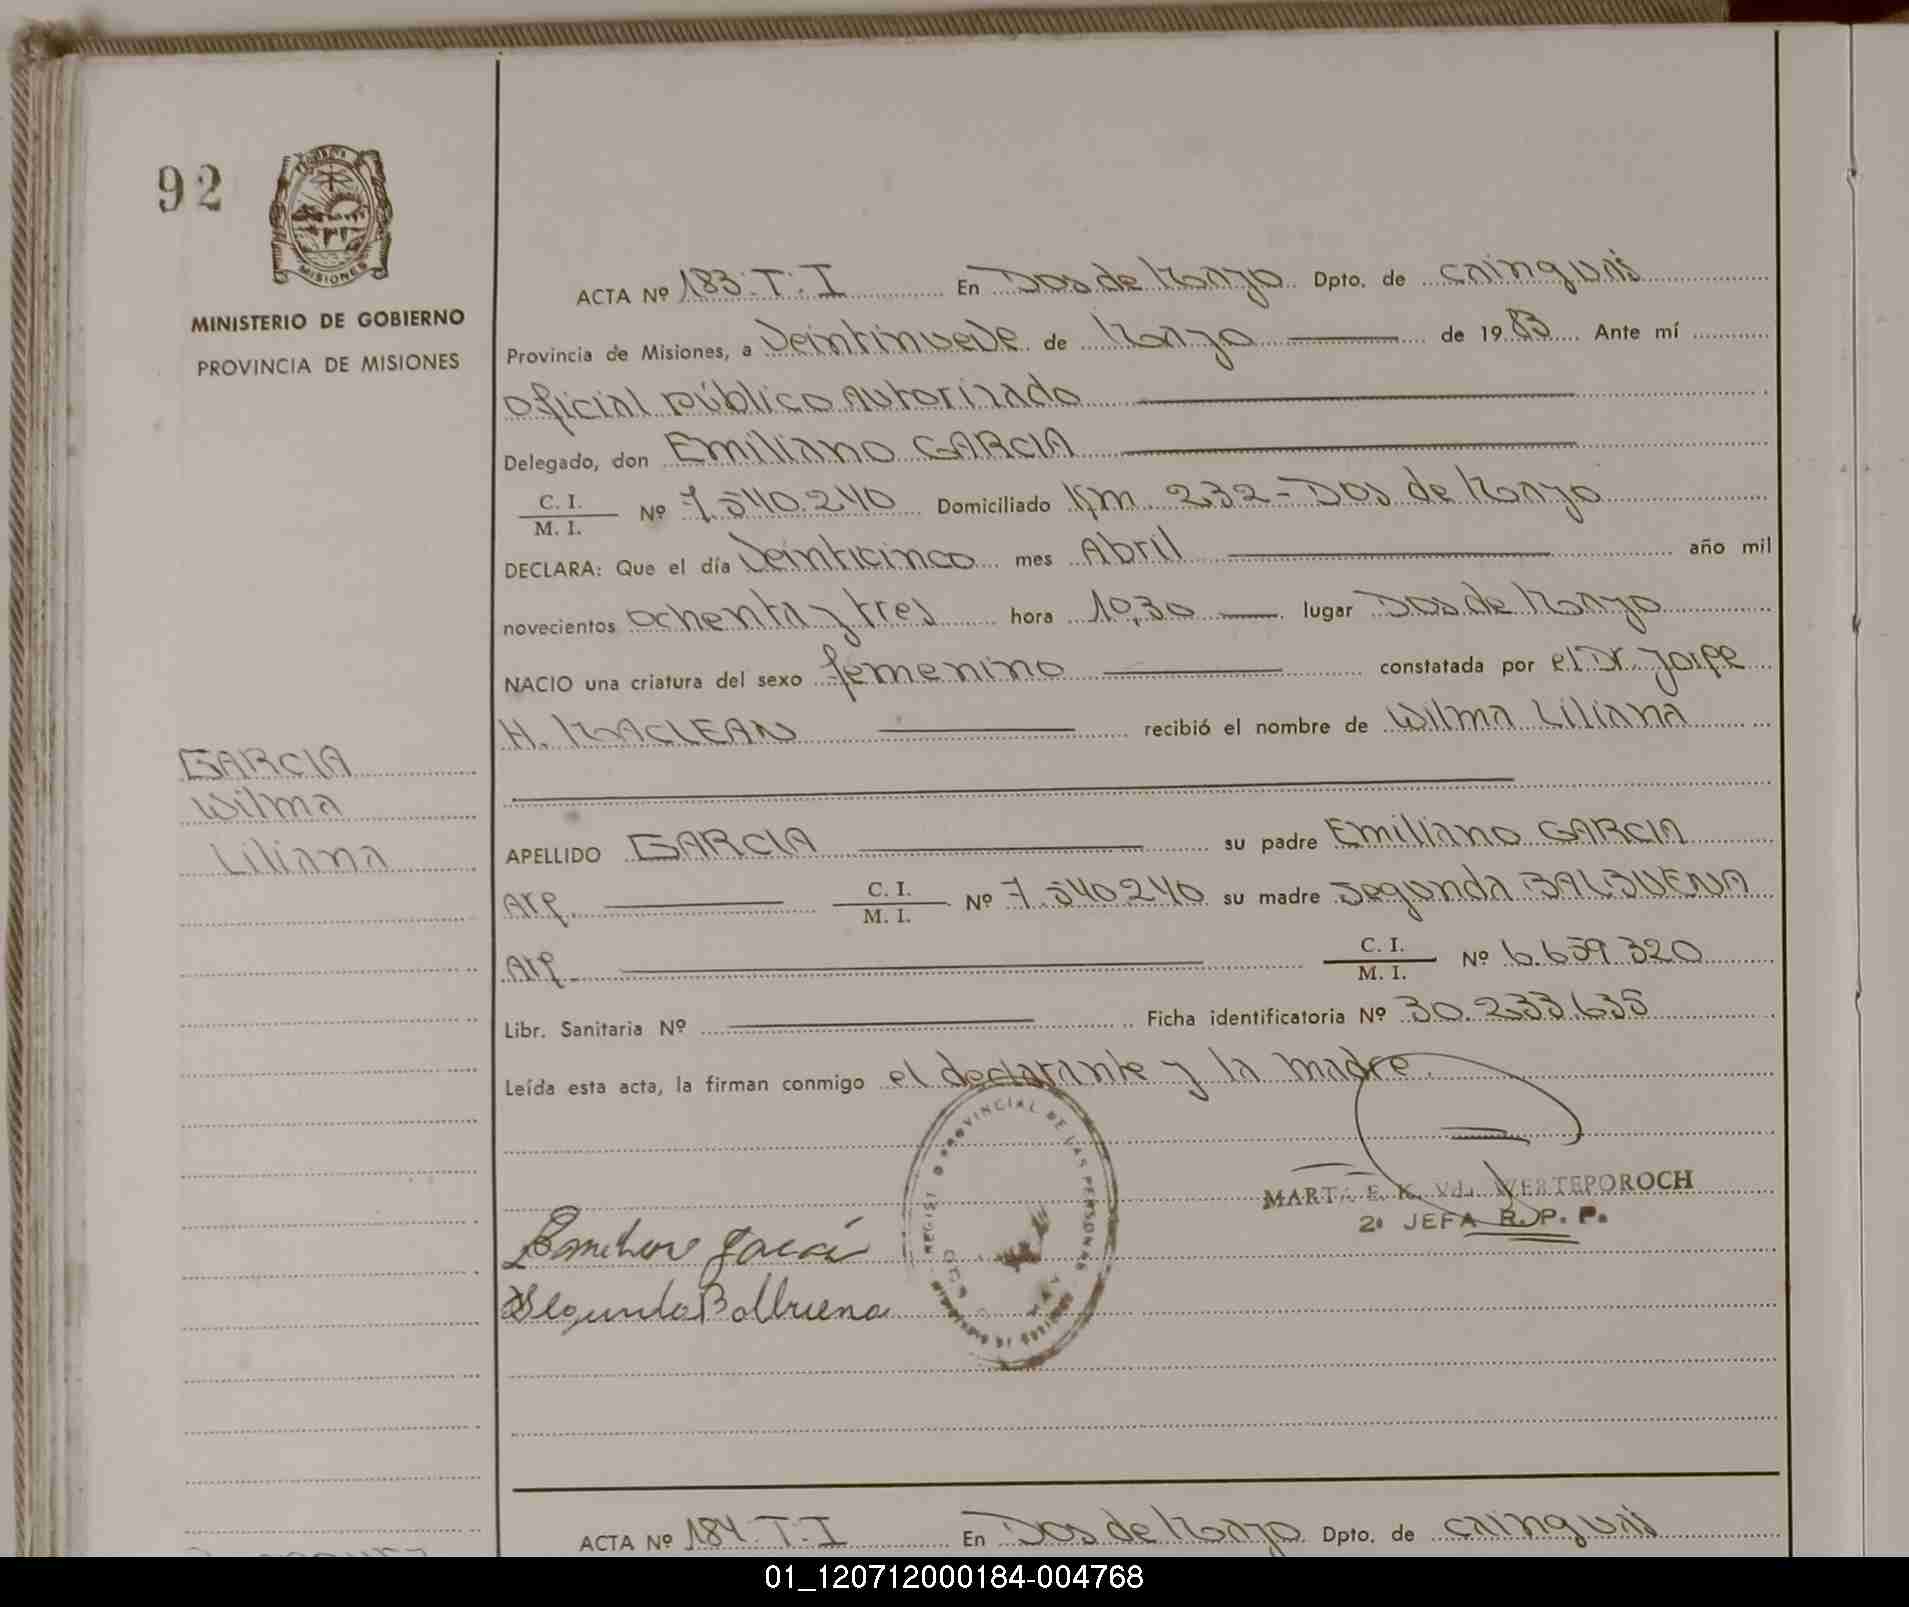 92
MISIONES
MINISTERIO DE GOBIERNO
PROVINCIA DE MISIONES
ACTA Nº 183.T:I En Dos de Mayo Dpto. de cainguás
Provincia de Misiones, a Veintinueve de Mayo de 1983 Ante mí
oficial público autorizado
Delegado, don Emiliano GARCIA
C. I.
M. I.
Nº 7.540.240 Domiciliado Km. 232-Dos de Mayo
DECLARA: Que el día Veinticinco mes Abril año mil
novecientos ochenta y tres hora 10,30 lugar Dos de Mayo
NACIO una criatura del sexo femenino constatada por el Dr. Jorge
H. MACLEAN recibió el nombre de Wilma Liliana
GARCIA
Wilma
Liliana
APELLIDO GARCIA su padre Emiliano GARCIA
Arg. C. I.
M. I.
Nº 7.540240 su madre Segunda BALBUENA
Arg. C. I.
M. I.
Nº 6.659.320
Libr. Sanitaria Nº Ficha identificatoria Nº 30.233.635
Leída esta acta, la firman conmigo el declarante y la madre.
PROVINCIAL DE LAS PERSONAS
MARTA E. K. Vda. WERTEPOROCH
2º JEFA R. P. P.
Segunda Balbuena
ACTA Nº 184.T:I En Dos de Mayo Dpto. de cainguás
01_120712000184-004768